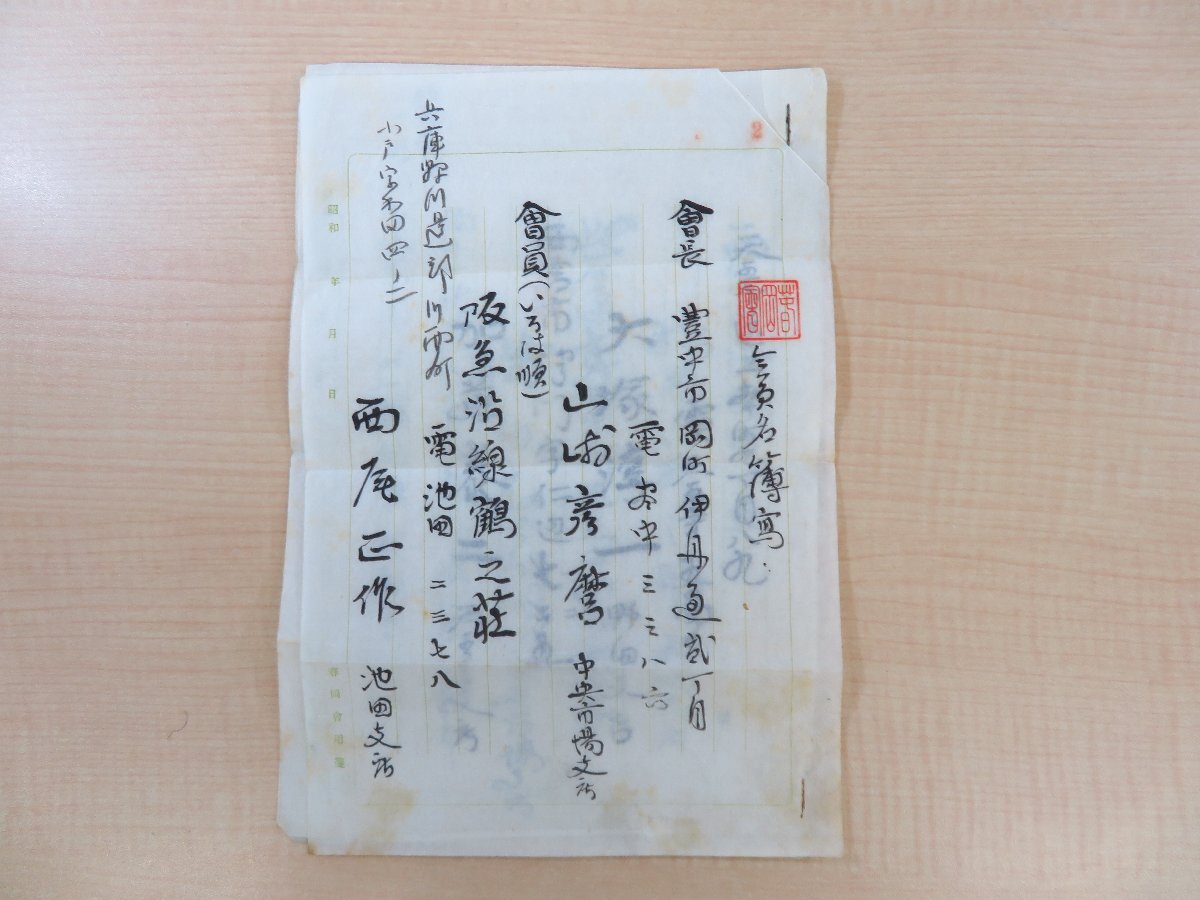 2
会員名簿寫
會長 豊中市岡町伊丹通貳丁目
電 豊中 三三八六
山崎彦麿 中央市場支所
會員(いろは順)
阪急沿線鶴之荘
電池田 二三七八
兵庫県川辺郡川西町
小戸字
西尾正作 池田支所
昭和 年 月 日
會用箋